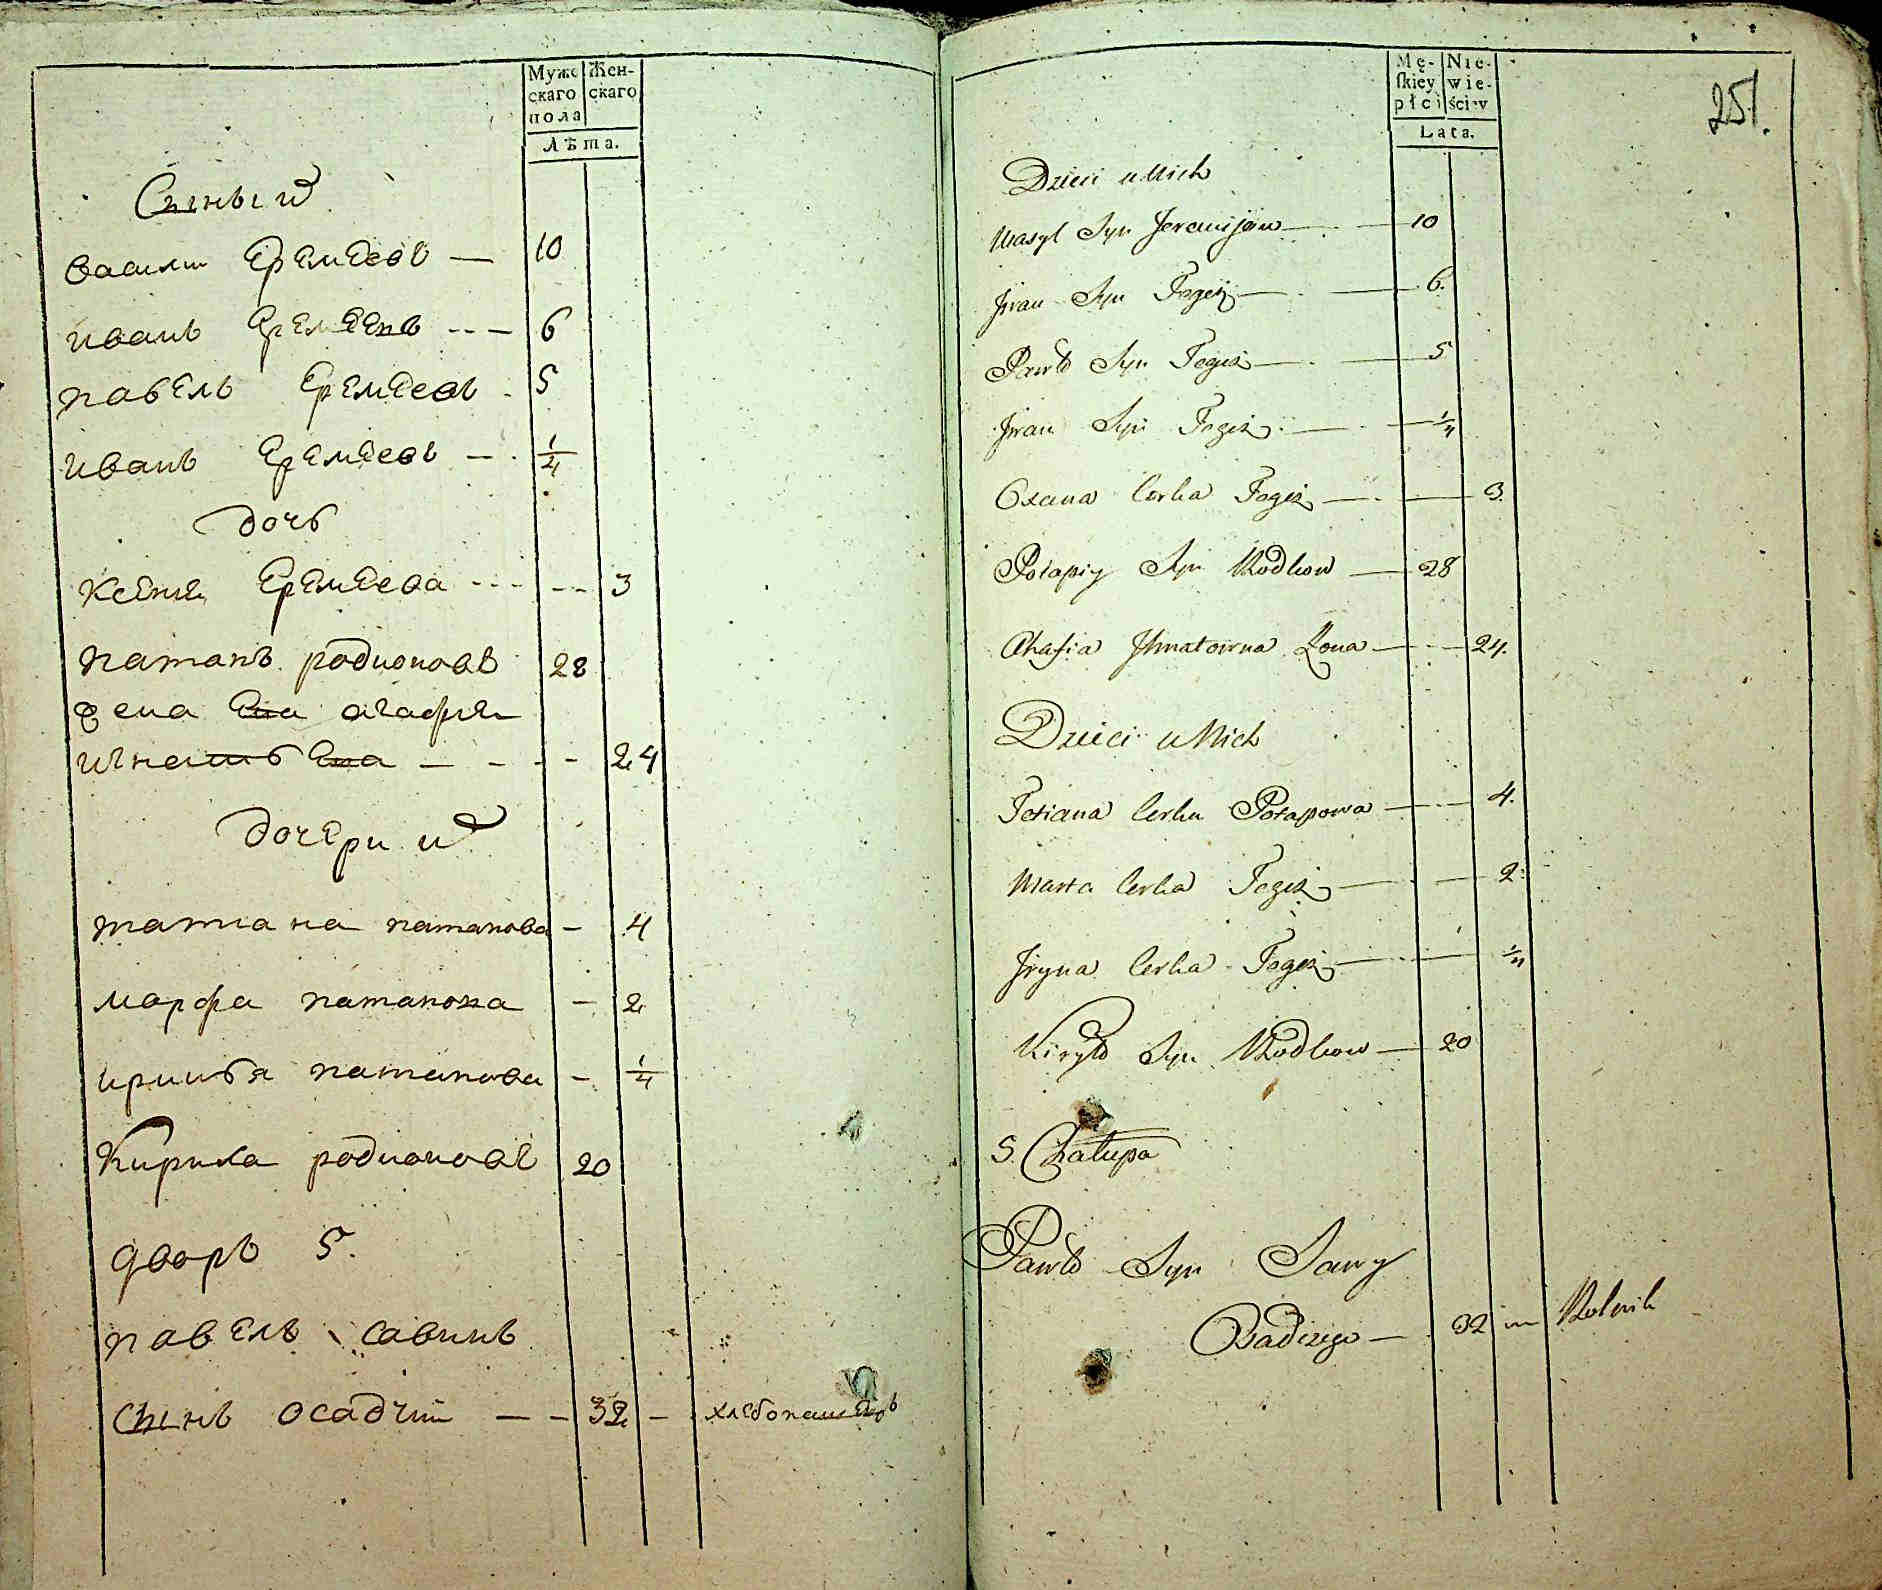 Мужс
скаго
пола
Жен-
скаго
Лѣта.
Сыны и
васили Еремеевъ — 10
иванъ Еремеевъ --- 6
павелъ Еремеевъ . 5
иванъ Еремеевъ — 1/4
дочъ
ксения Еремеева --- -- 3
патапъ родионовъ 28
жена Ева агафия
игнатьева — - - - 24
дочери и
татиана патапова — 4
марфа патапова — 2
ириня патапова — 1/4
Кирила родионовъ 20
дворъ 5.
павелъ савинъ
сынъ осадчии — — 32 — хлебопашецъ
251.
Mę-
skiey
płci
Nie-
wie-
ściey
Lata.
Dzieci u Nich
Wasyl Syn Jeremijow — 10
Jwan Syn Tegoż — 6.
Pawło Syn Tegoż — 5
Jwan Syn Tegoż — 1/4
Oxana Corka Tegoż — 3.
Potapiy Syn Rodkow — 28
Ahafia Jhnatowna Żona — 24.
Dzieci u Nich
Tetiana Corka Potapowa — 4.
Marta Corka Tegoż — 2
Jryna Corka Tegoż — 1/4
Kiryło Syn Rodkow — 20
5. Chałupa
Pawło Syn Sawy
Osadczego — 32 — Rolnik